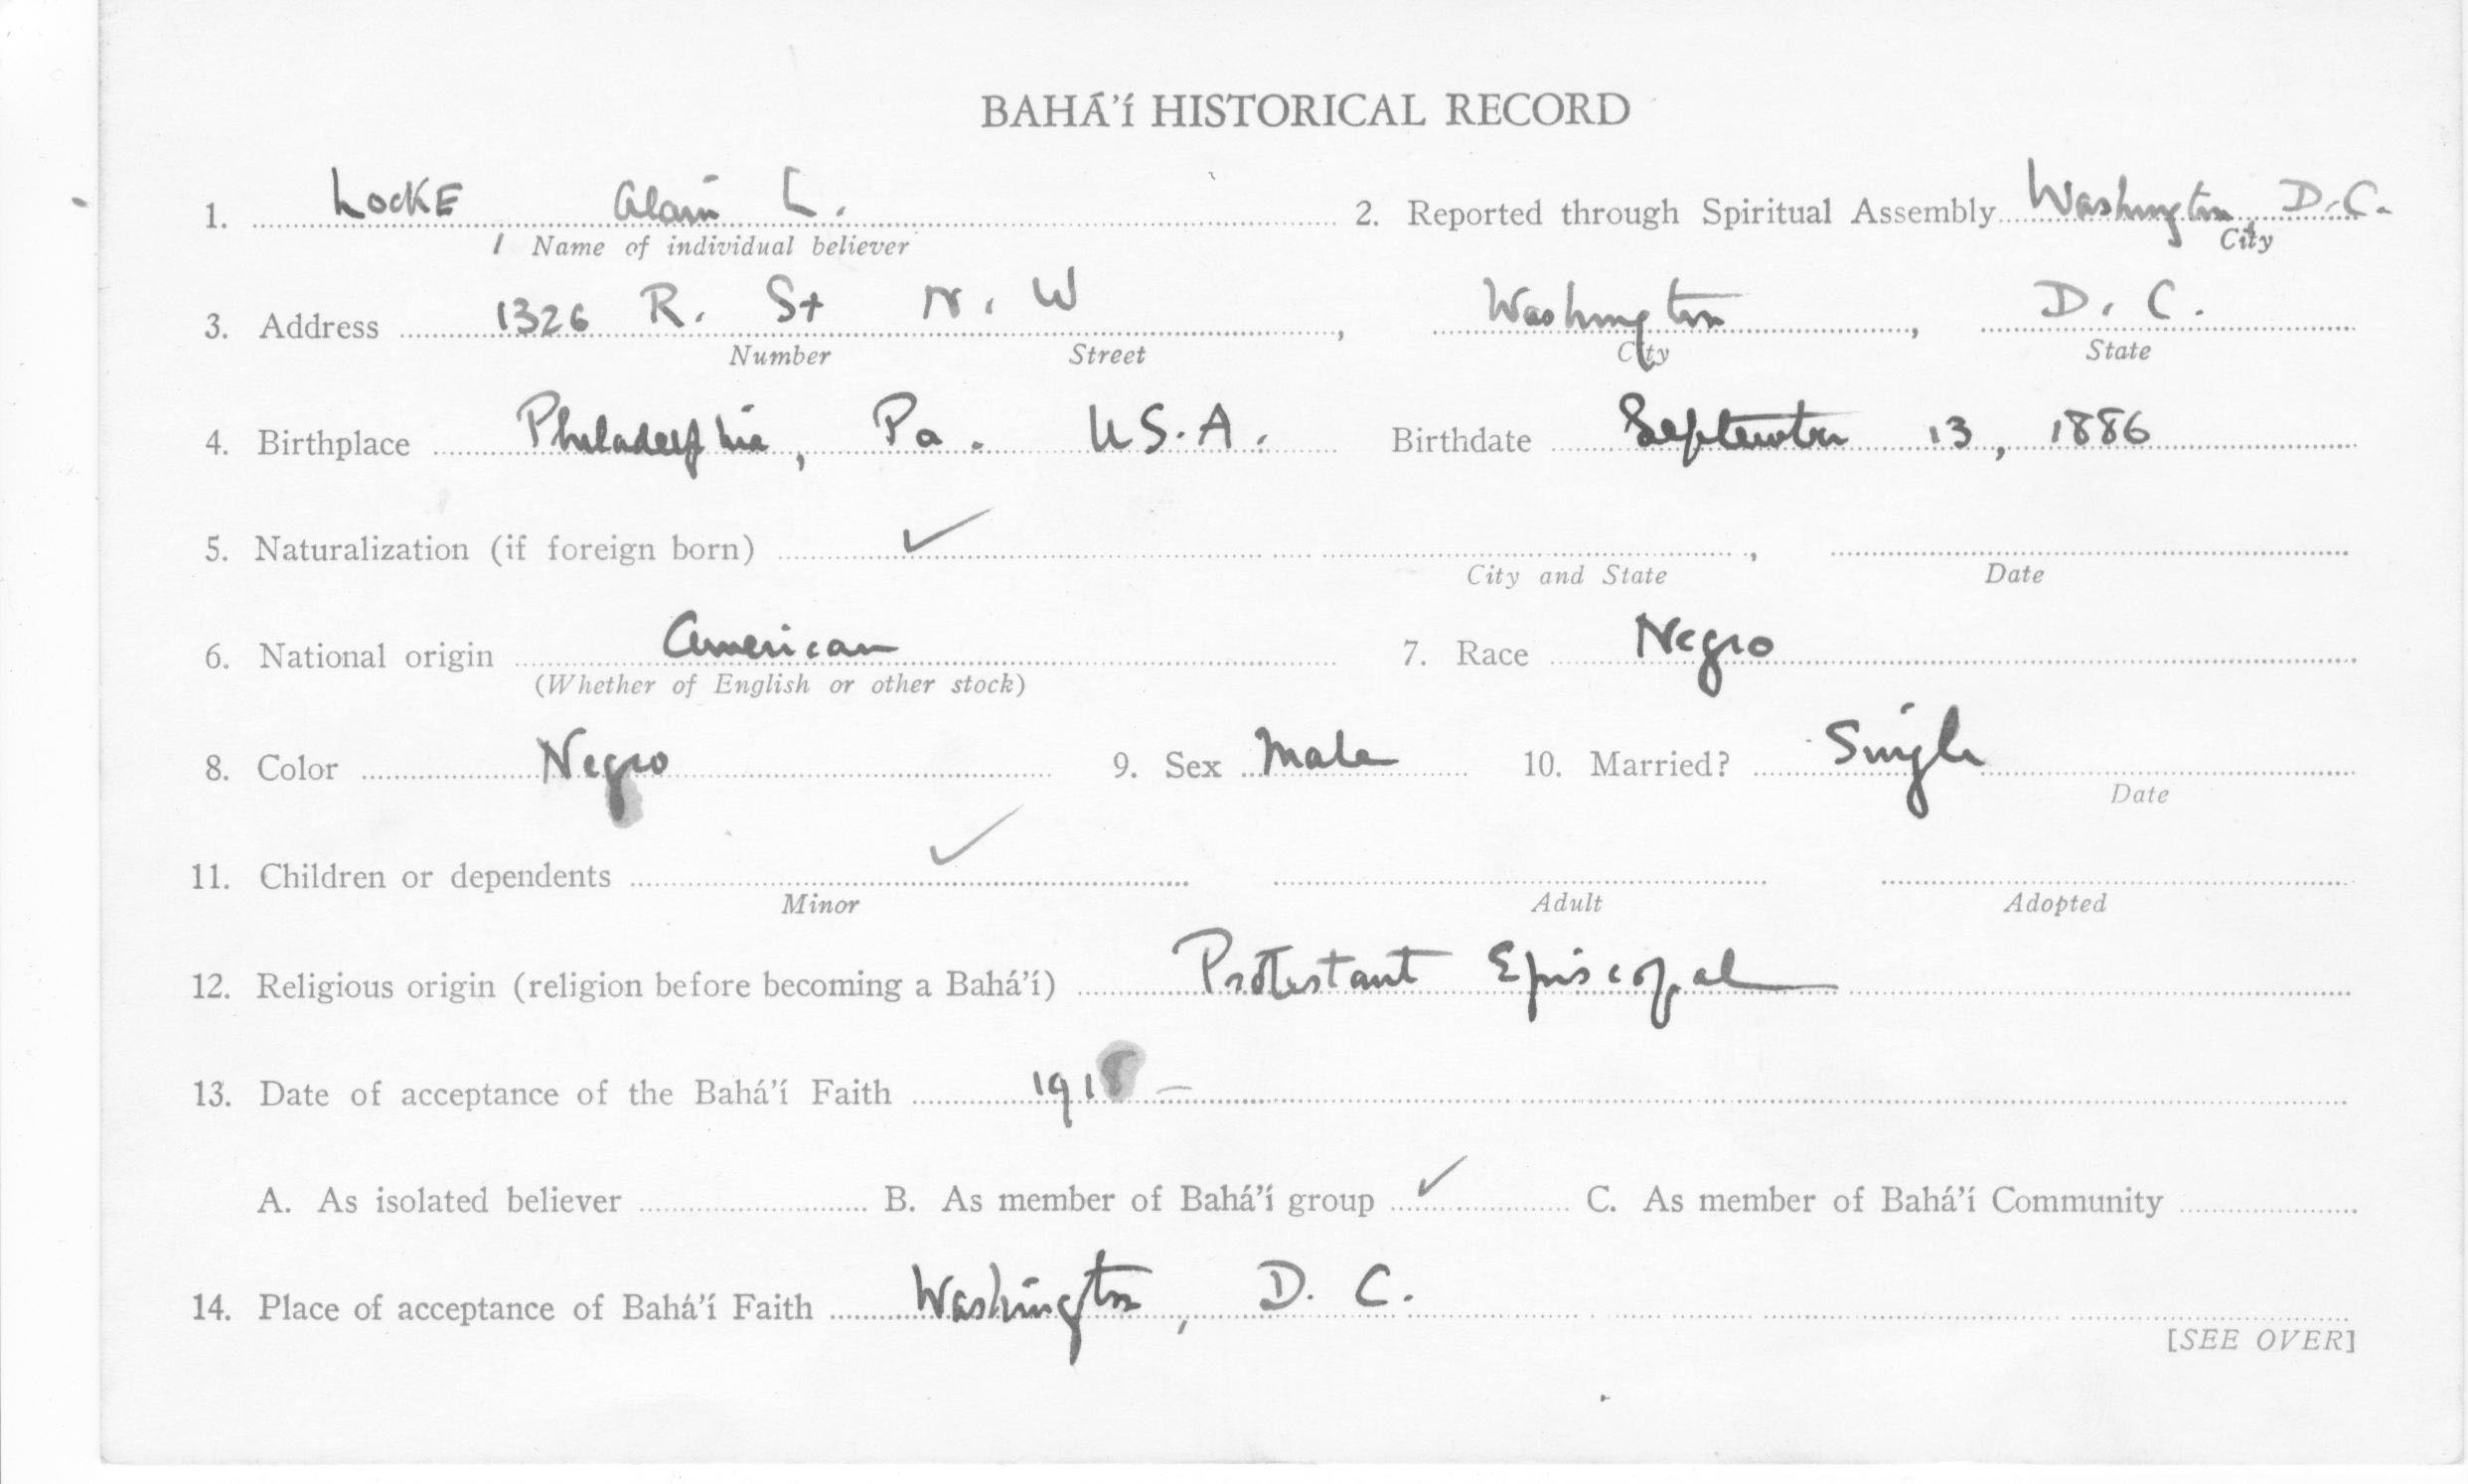 BAHÁ'Í HISTORICAL RECORD
1. LOCKE Alain L. 2. Reported through Spiritual Assembly Washington, D.C.
Name of individual believer City
3. Address 1326 R. St N. W , Washington , D. C.
Number Street City State
4. Birthplace Philadelphia, Pa. U.S.A. Birthdate September 13, 1886
5. Naturalization (if foreign born) ✓ ,
City and State Date
6. National origin American 7. Race Negro
(Whether of English or other stock)
8. Color Negro 9. Sex Male 10. Married? Single
Date
11. Children or dependents ✓
Minor Adult Adopted
12. Religious origin (religion before becoming a Bahá'í) Protestant Episcopal
13. Date of acceptance of the Bahá'í Faith 1918 –
A. As isolated believer B. As member of Bahá'í group ✓ C. As member of Bahá'í Community
14. Place of acceptance of Bahá'í Faith Washington, D. C.
[SEE OVER]